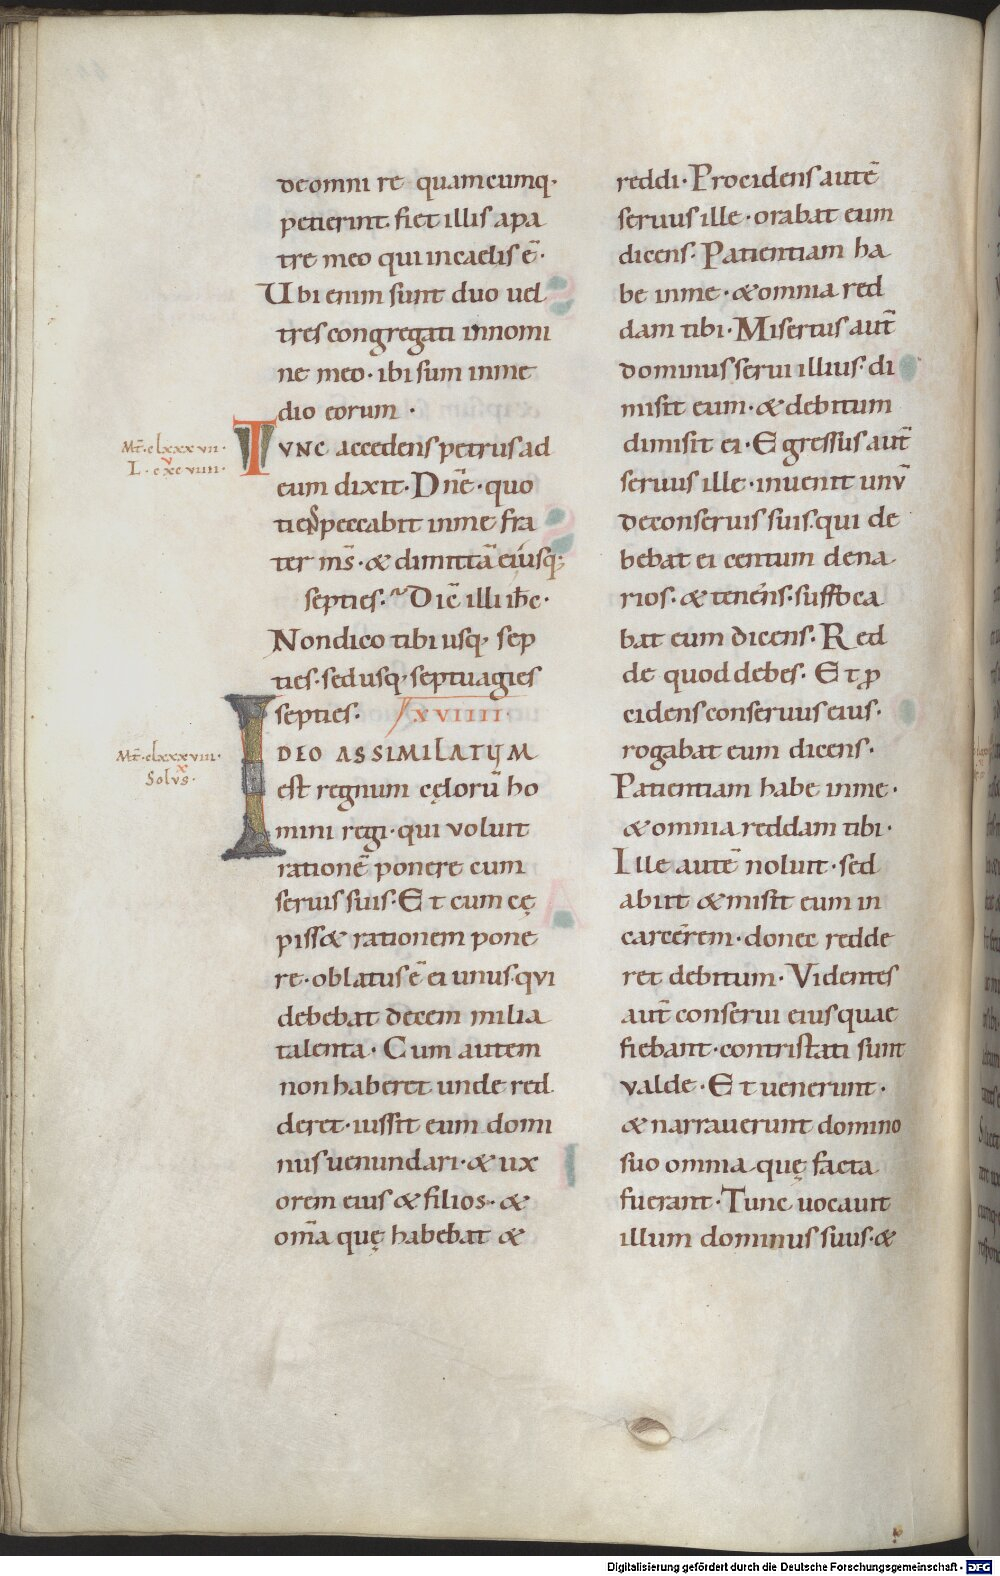 de omni re quamcumq·
petierint· fiet illis a pa
tre meo qui in caelis ē·
Ubi enim sunt duo uel
tres congregati in nomi
ne meo· ibi sum in me
dio eorum ·
Mt̄· clxxxvii·
L· cxcviiii·
v
TVNC accedens petrus ad
eum dixit· Dn̄e· quo
tiens peccabit in me fra
ter m̄s· & dimittā ei usq;
septies· Dic̄ illi ih̄c·
Non dico tibi usq; sep
ties· sed usq; septuagies
septies· XVIIII·
Mt̄· clxxxviii·
x
Solvs·
IDEO ASSIMILATUM
est regnum cęlorū ho
mini regi· qui voluit
rationē ponere cum
seruis suis· Et cum cę
piss& rationem pone
re· oblatus ē ei unus· qvi
debebat decem milia
talenta· Cum autem
non haberet unde red
deret· iussit eum domi
nus uenundari· & ux
orem eius & filios· &
om̄a quę habebat &
reddi· Procidens autē
seruus ille· orabat eum
dicens· Patientiam ha
be in me· & omnia red
dam tibi· Misertus aut̄
dominus serui illius· di
misit eum· & debitum
dimisit ei· Egressus aut̄
seruus ille· inuenit unv̄
de conseruis suis· qui de
bebat ei centum dena
rios· & tenens· suffoca
bat eum dicens· Red
de quod debes· Et ꝓ
cidens conseruus eius·
rogabat eum dicens·
Patientiam habe in me·
& omnia reddam tibi·
Ille autē noluit· sed
abiit & misit eum in
carcerem· donec redde
ret debitum· Videntes
aut̄ conserui eius quae
fiebant· contristati sunt
valde· Et uenerunt·
& narrauerunt domino
suo omnia quę facta
fuerant· Tunc uocauit
illum dominus suus· &
Digitalisierung gefördert durch die Deutsche Forschungsgemeinschaft - DFG